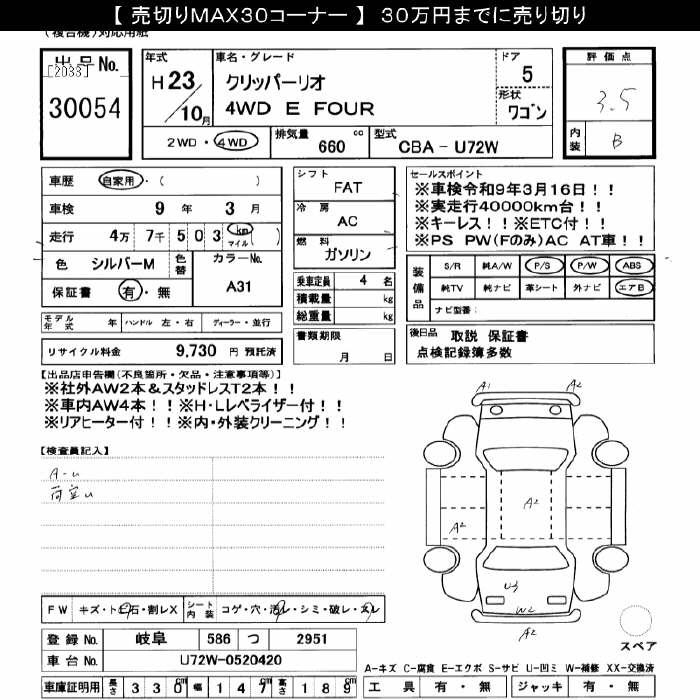 【 売切りMAX30コーナー 】 30万円までに売り切り
(複合機)対応用紙
出品No.
[2033]
30054
年式
H 23/10月
車名・グレード
クリッパーリオ
4WD E FOUR
ドア
5
形状
ワゴン
評価点
3.5
内装
B
2WD・4WD
排気量
660 cc
型式
CBA - U72W
車歴
自家用・( )
車検
9 年 3 月
走行
4万 7千 5 0 3 km マイル ( )
色
シルバーM
色替
カラーNo.
A31
保証書
有・無
シフト
FAT
冷房
AC
燃料
ガソリン
乗車定員 4 名
積載量 kg
総重量 kg
セールスポイント
※車検令和9年3月16日！！
※実走行40000km台！！
※キーレス！！※ETC付！！
※PS PW(Fのみ)AC AT車！！
装備品
S/R 純A/W P/S P/W ABS
純TV 純ナビ 革シート 外ナビ エアB
ナビ型番:
モデル年式 年 ハンドル 左・右 ディーラー・並行
リサイクル料金 9,730 円 預託済
書類期限
月 日
後日品
取説 保証書
点検記録簿多数
【出品店申告欄(不良箇所・欠品・注意事項等)】
※社外AW2本＆スタッドレスT2本！！
※車内AW4本！！※H・Lレベライザー付！！
※リアヒーター付！！※内・外装クリーニング！！
【検査員記入】
A-U
荷室U
A1 A2
A2
A2
U3
W2
A2
スペア
FW キズ・トビ石・割レX
シート内装 コゲ・穴・汚レ・シミ・破レ・スレ
登録No. 岐阜 586 つ 2951
車台No. U72W-0520420
車庫証明用 長さ 330cm 幅 147cm 高さ 189cm
A-キズ C-腐食 E-エクボ S-サビ U-凹ミ W-補修 XX-交換済
工具 有・無 ジャッキ 有・無